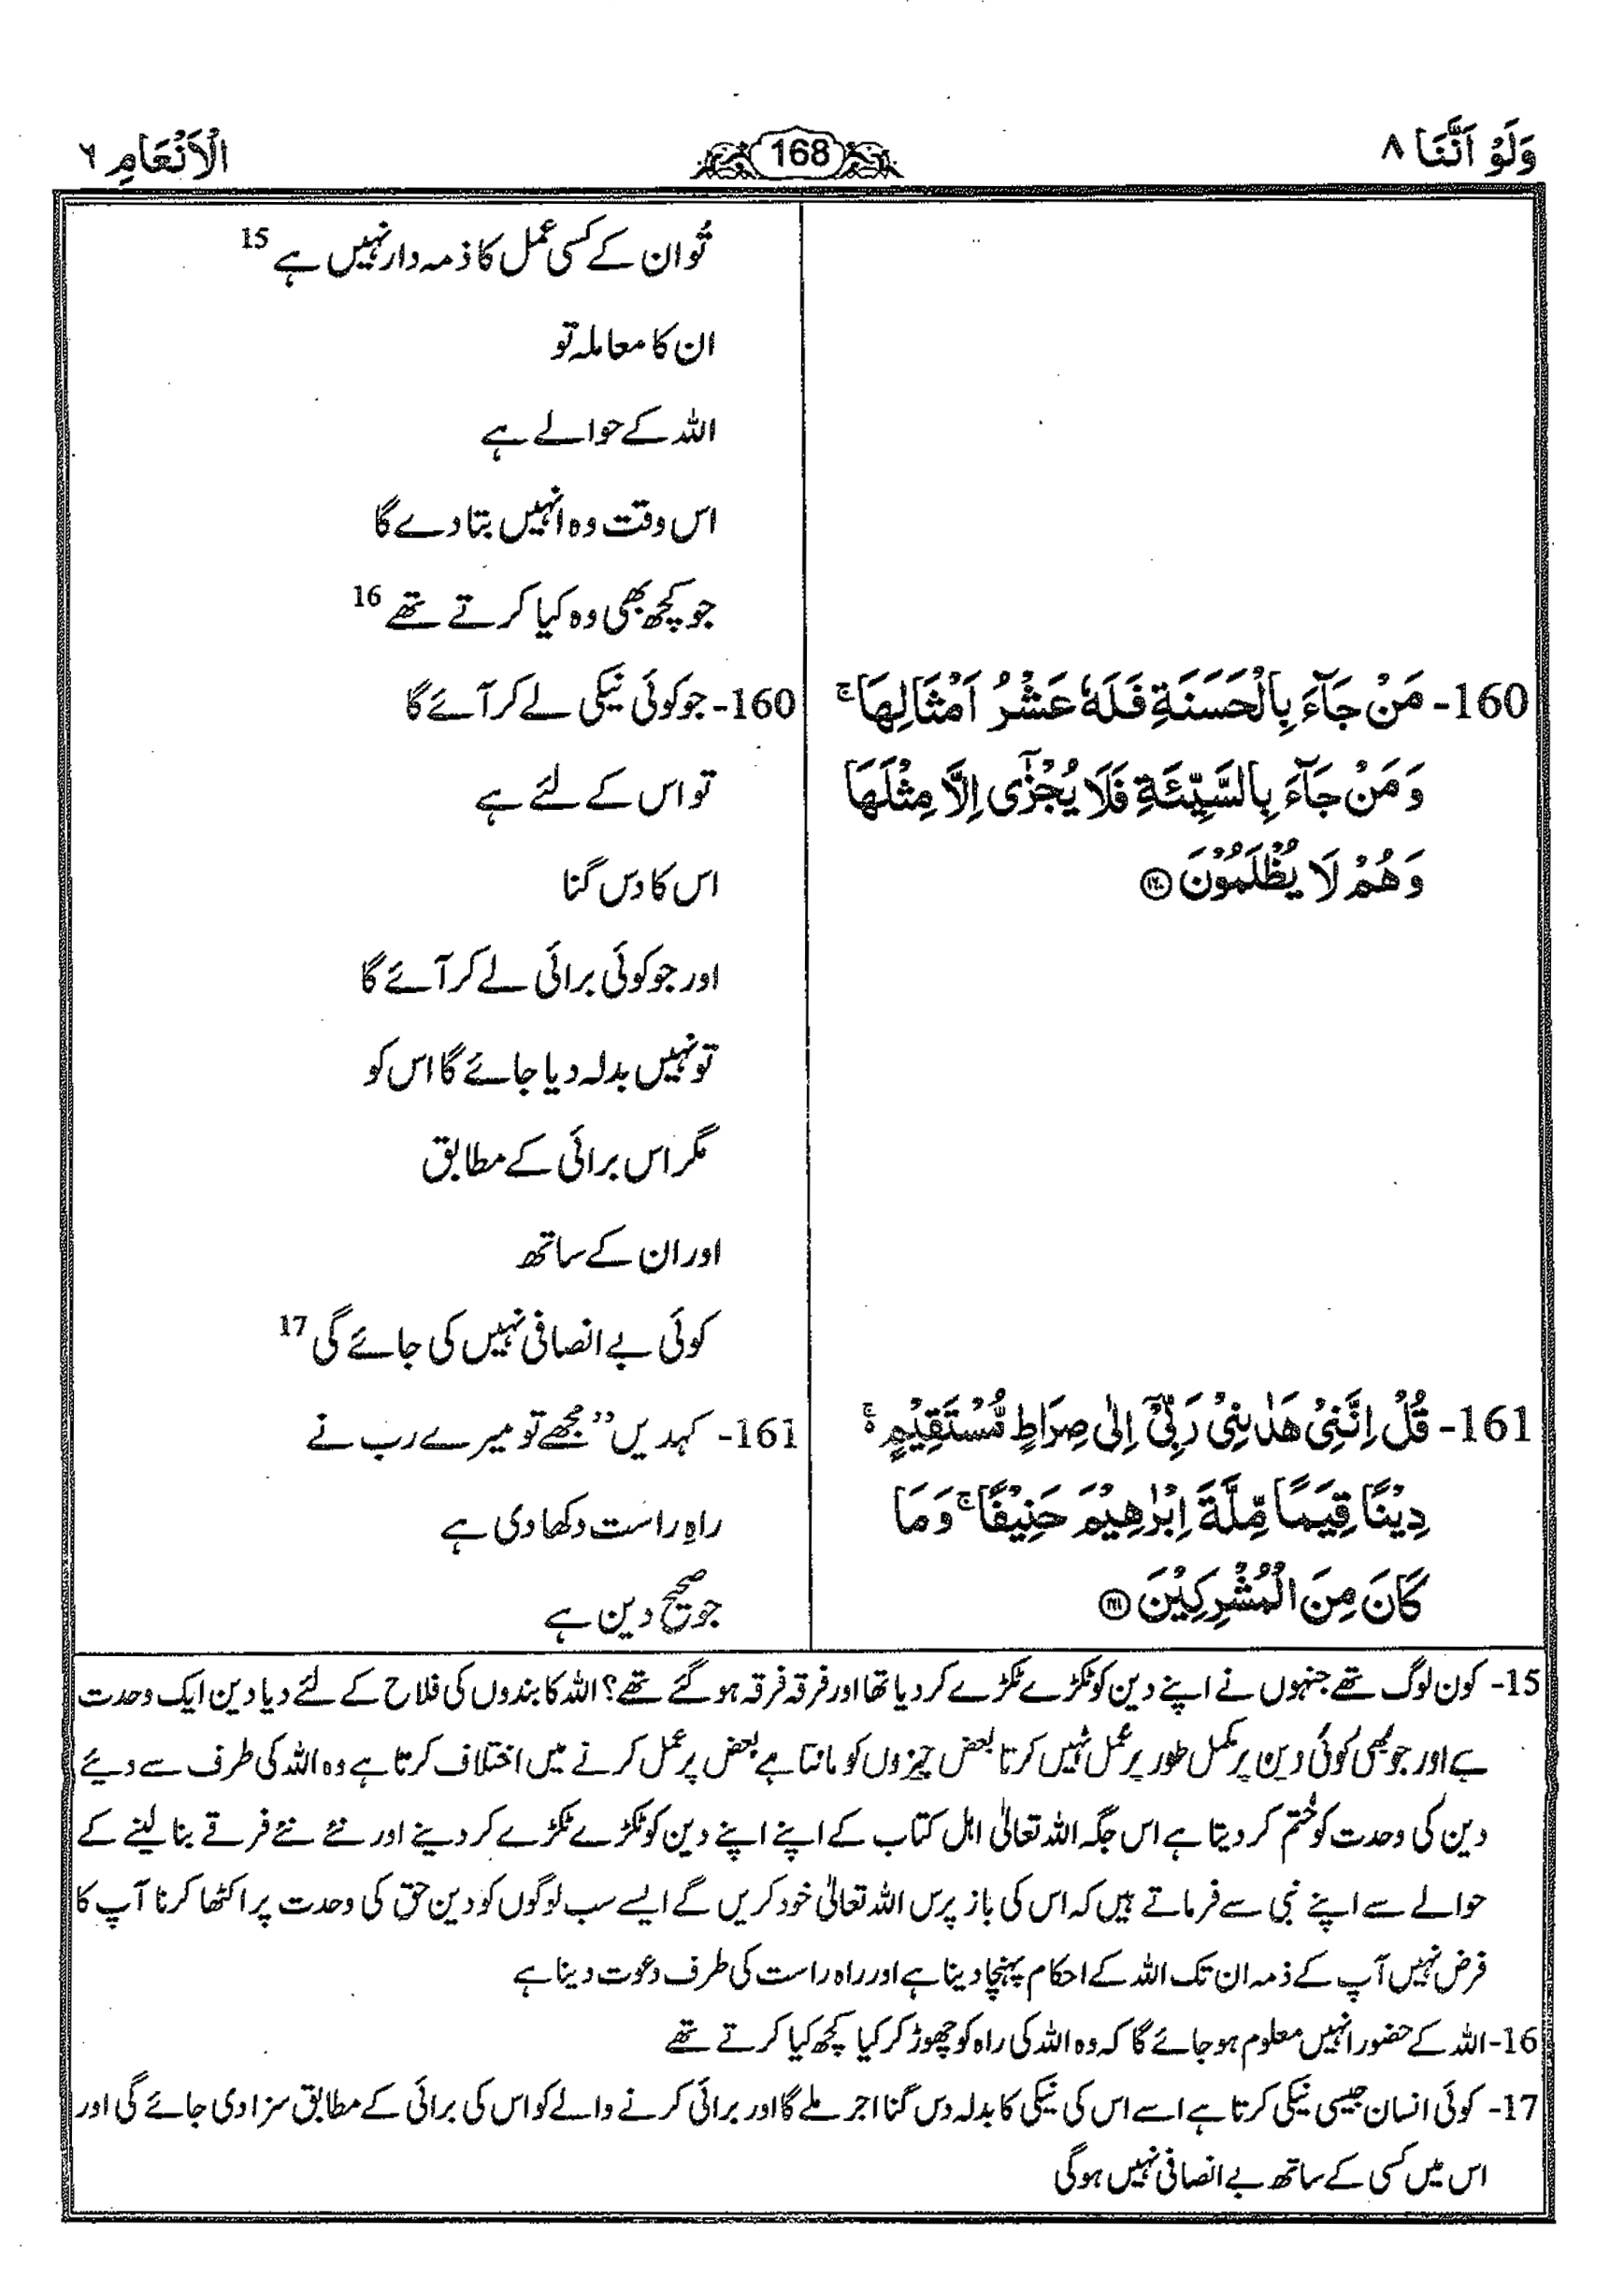 وَلَوْ اَنَّنَا ۸
168
الْاَنْعَامِ ٦
تُو ان کے کسی عمل کا ذمہ دار نہیں ہے 15
ان کا معاملہ تو
اللہ کے حوالے ہے
اس وقت وہ انہیں بتا دے گا
جو کچھ بھی وہ کیا کرتے تھے 16
160- مَنْ جَآءَ بِالْحَسَنَةِ فَلَهٗ عَشْرُ اَمْثَالِهَا ۚ
وَمَنْ جَآءَ بِالسَّيِّئَةِ فَلَا يُجْزٰٓى اِلَّا مِثْلَهَا
وَهُمْ لَا يُظْلَمُوْنَ ۝۱۶۰
160- جو کوئی نیکی لے کر آئے گا
تو اس کے لئے ہے
اس کا دس گنا
اور جو کوئی برائی لے کر آئے گا
تو نہیں بدلہ دیا جائے گا اس کو
مگر اس برائی کے مطابق
اور ان کے ساتھ
کوئی بے انصافی نہیں کی جائے گی 17
161- قُلْ اِنَّنِيْ هَدٰىنِيْ رَبِّيْٓ اِلٰى صِرَاطٍ مُّسْتَقِيْمٍ ۚ
دِيْنًا قِيَمًا مِّلَّةَ اِبْرٰهِيْمَ حَنِيْفًا ۚ وَمَا
كَانَ مِنَ الْمُشْرِكِيْنَ ۝۱۶۱
161- کہدیں ”مُجھے تو میرے رب نے
راہِ راست دکھا دی ہے
جو صحیح دین ہے
15- کون لوگ تھے جنہوں نے اپنے دین کو ٹکڑے ٹکڑے کر دیا تھا اور فرقہ فرقہ ہو گئے تھے؟ اللہ کا بندوں کی فلاح کے لئے دیا دین ایک وحدت
ہے اور جو بھی کوئی دین پر مکمل طور پر عمل نہیں کرتا بعض چیزوں کو مانتا ہے بعض پر عمل کرنے میں اختلاف کرتا ہے وہ اللہ کی طرف سے دیئے
دین کی وحدت کو ختم کر دیتا ہے اس جگہ اللہ تعالیٰ اہل کتاب کے اپنے اپنے دین کو ٹکڑے ٹکڑے کر دینے اور نئے نئے فرقے بنا لینے کے
حوالے سے اپنے نبی سے فرماتے ہیں کہ اس کی باز پرس اللہ تعالیٰ خود کریں گے ایسے سب لوگوں کو دین حق کی وحدت پر اکٹھا کرنا آپ کا
فرض نہیں آپ کے ذمہ ان تک اللہ کے احکام پہنچا دینا ہے اور راہ راست کی طرف دعوت دینا ہے
16- اللہ کے حضور انہیں معلوم ہو جائے گا کہ وہ اللہ کی راہ کو چھوڑ کر کیا کچھ کیا کرتے تھے
17- کوئی انسان جیسی نیکی کرتا ہے اسے اس کی نیکی کا بدلہ دس گنا اجر ملے گا اور برائی کرنے والے کو اس کی برائی کے مطابق سزا دی جائے گی اور
اس میں کسی کے ساتھ بے انصافی نہیں ہوگی